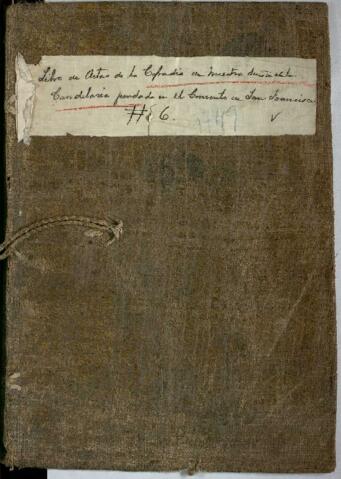 Libro de Actas de la Cofradia de Nuestra Señora de la
Candelaria fundada en el Convento de San Francisco
# 6.